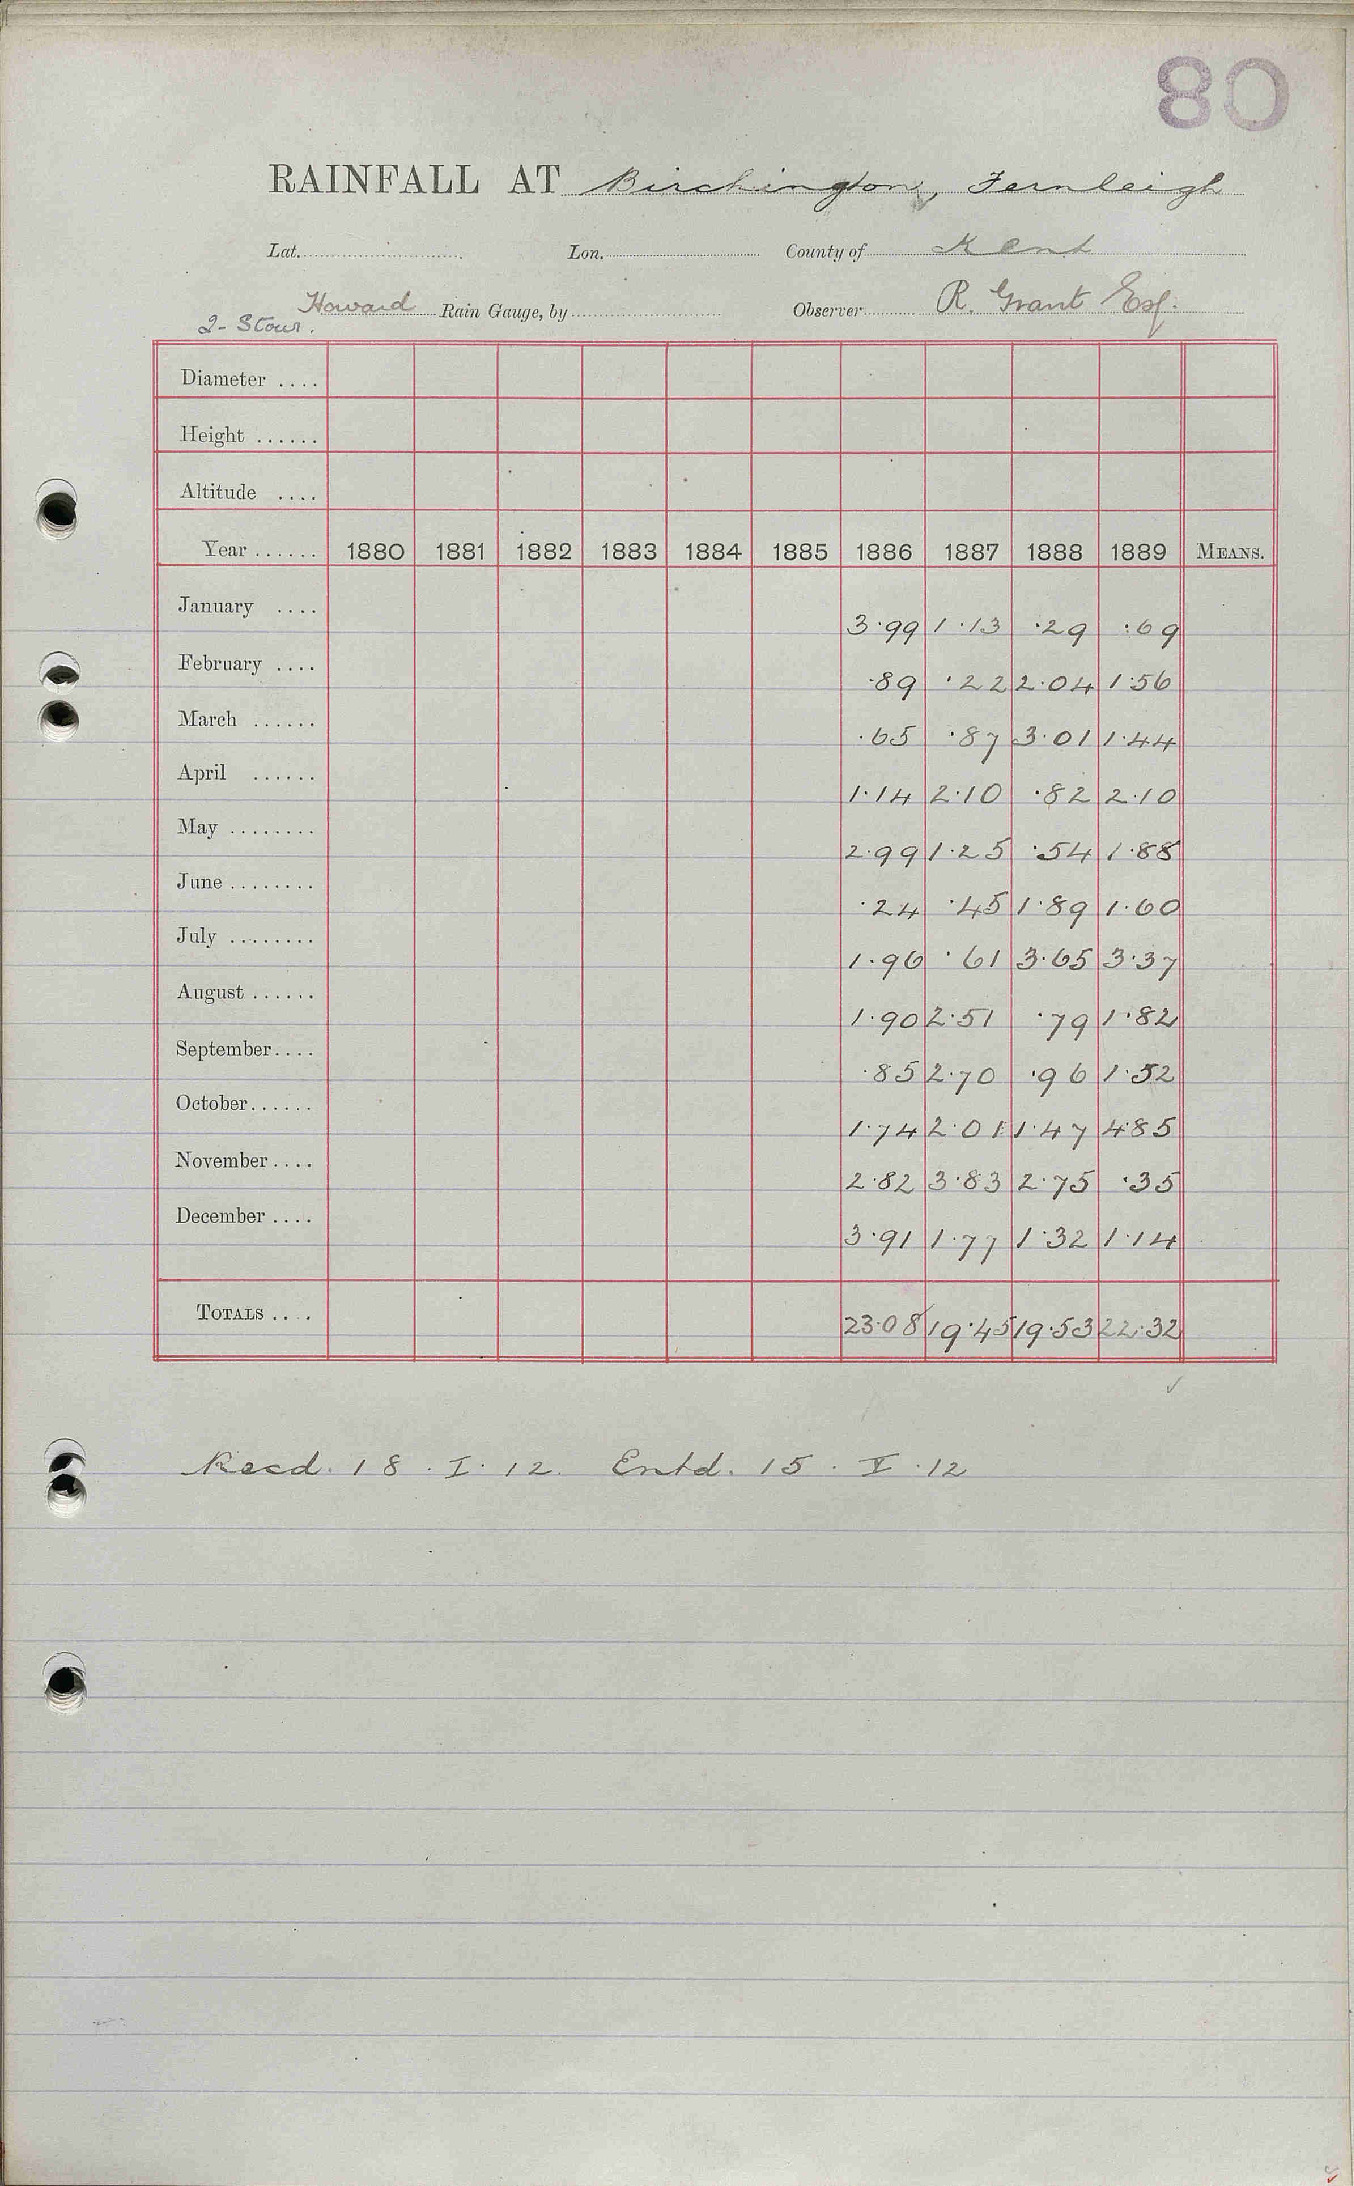 80
RAINFALL AT Birchington, Fernleigh
Lat. Lon. County of Kent
Howard Rain Gauge, by Observer R. Grant Esq.
2- Stour.
Diameter ....
Height ......
Altitude ....
Year ...... 1880 1881 1882 1883 1884 1885 1886 1887 1888 1889 MEANS.
January .... 3.99 1.13 .29 .69
February .... .89 .22 2.04 1.56
March ...... .65 .87 3.01 1.44
April ...... 1.14 2.10 .82 2.10
May ........ 2.99 1.25 .54 1.88
June ........ .24 .45 1.89 1.60
July ........ 1.96 .61 3.65 3.37
August ...... 1.90 2.51 .79 1.82
September.... .85 2.70 .96 1.52
October...... 1.74 2.01 1.47 4.85
November.... 2.82 3.83 2.75 .35
December .... 3.91 1.77 1.32 1.14
TOTALS .... 23.08 19.45 19.53 22.32
Recd. 18.I.12. Entd. 15.V.12